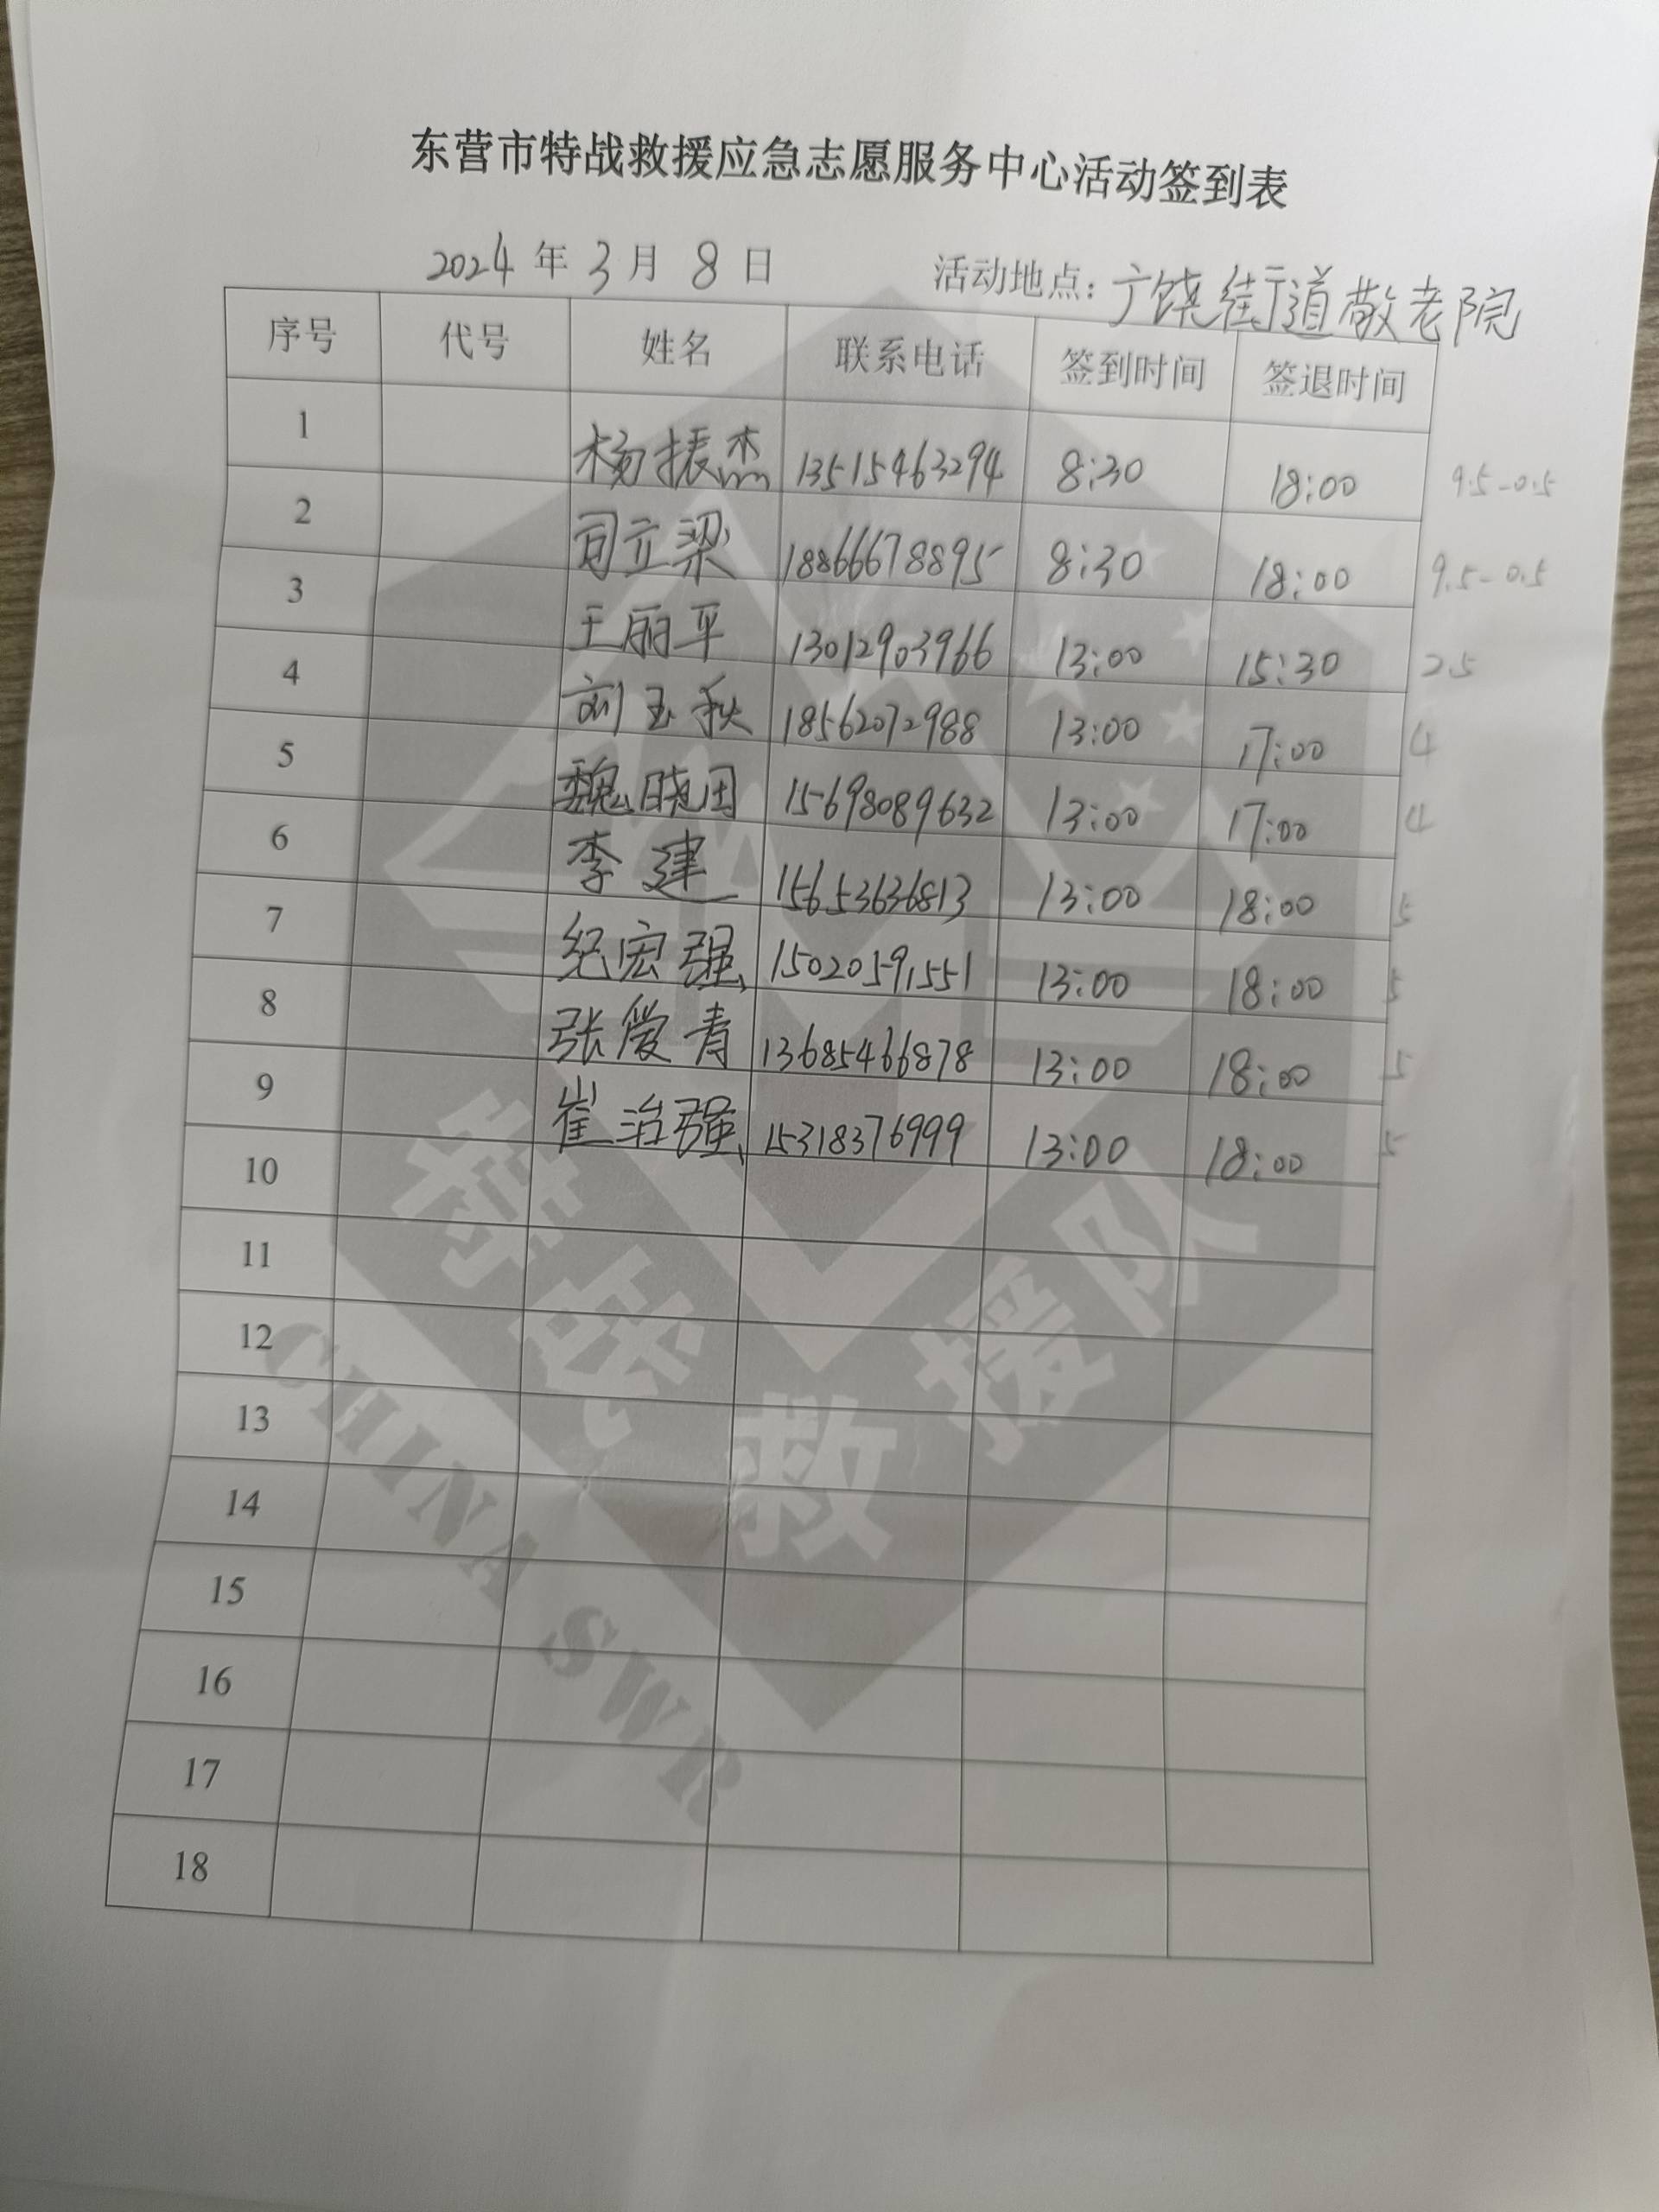 东营市特战救援应急志愿服务中心活动签到表
2024 年 3 月 8 日 活动地点：广饶街道敬老院
序号 代号 姓名 联系电话 签到时间 签退时间
1 杨振杰 13515463294 8:30 18:00 9.5-0.5
2 司立梁 18866678895 8:30 18:00 9.5-0.5
3 王丽平 13012903966 13:00 15:30 2.5
4 刘玉秋 18562072988 13:00 17:00 4
5 魏晓田 15698089632 13:00 17:00 4
6 李建 15653636813 13:00 18:00 5
7 纪宏强 15020591551 13:00 18:00 5
8 张爱青 13685466878 13:00 18:00 5
9 崔治强 15318376999 13:00 18:00 5
10
11
12
13
14
15
16
17
18
特战救援队
CHINA SWR